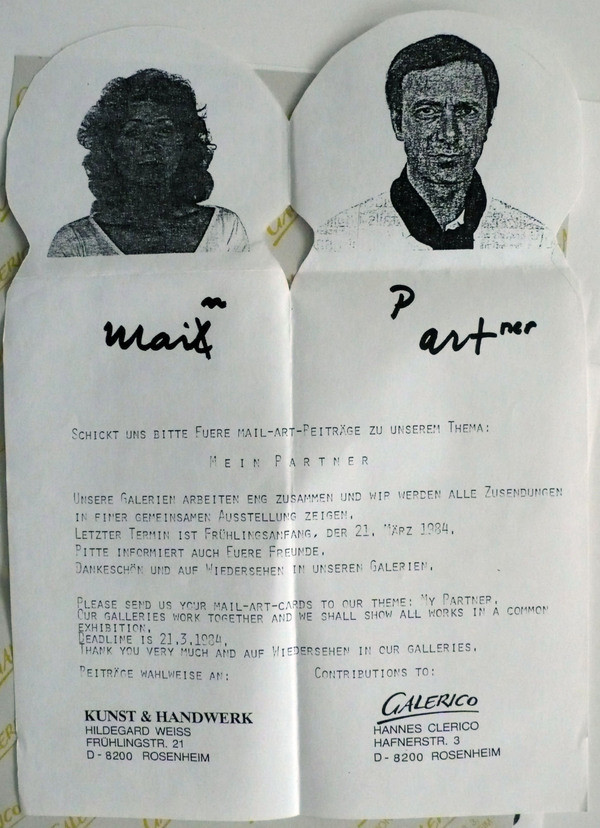 mail n
P artner
SCHICKT UNS BITTE EUERE MAIL-ART-BEITRÄGE ZU UNSEREM THEMA:
MEIN PARTNER
UNSERE GALERIEN ARBEITEN ENG ZUSAMMEN UND WIR WERDEN ALLE ZUSENDUNGEN
IN EINER GEMEINSAMEN AUSSTELLUNG ZEIGEN.
LETZTER TERMIN IST FRÜHLINGSANFANG, DER 21. MÄRZ 1984.
BITTE INFORMIERT AUCH EUERE FREUNDE.
DANKESCHÖN UND AUF WIEDERSEHEN IN UNSEREN GALERIEN.
PLEASE SEND US YOUR MAIL-ART-CARDS TO OUR THEME: MY PARTNER.
OUR GALLERIES WORK TOGETHER AND WE SHALL SHOW ALL WORKS IN A COMMON
EXHIBITION.
DEADLINE IS 21.3.1984.
THANK YOU VERY MUCH AND AUF WIEDERSEHEN IN OUR GALLERIES.
BEITRÄGE WAHLWEISE AN: CONTRIBUTIONS TO:
KUNST & HANDWERK
HILDEGARD WEISS
FRÜHLINGSTR. 21
D-8200 ROSENHEIM
GALERICO
HANNES CLERICO
HAFNERSTR. 3
D-8200 ROSENHEIM